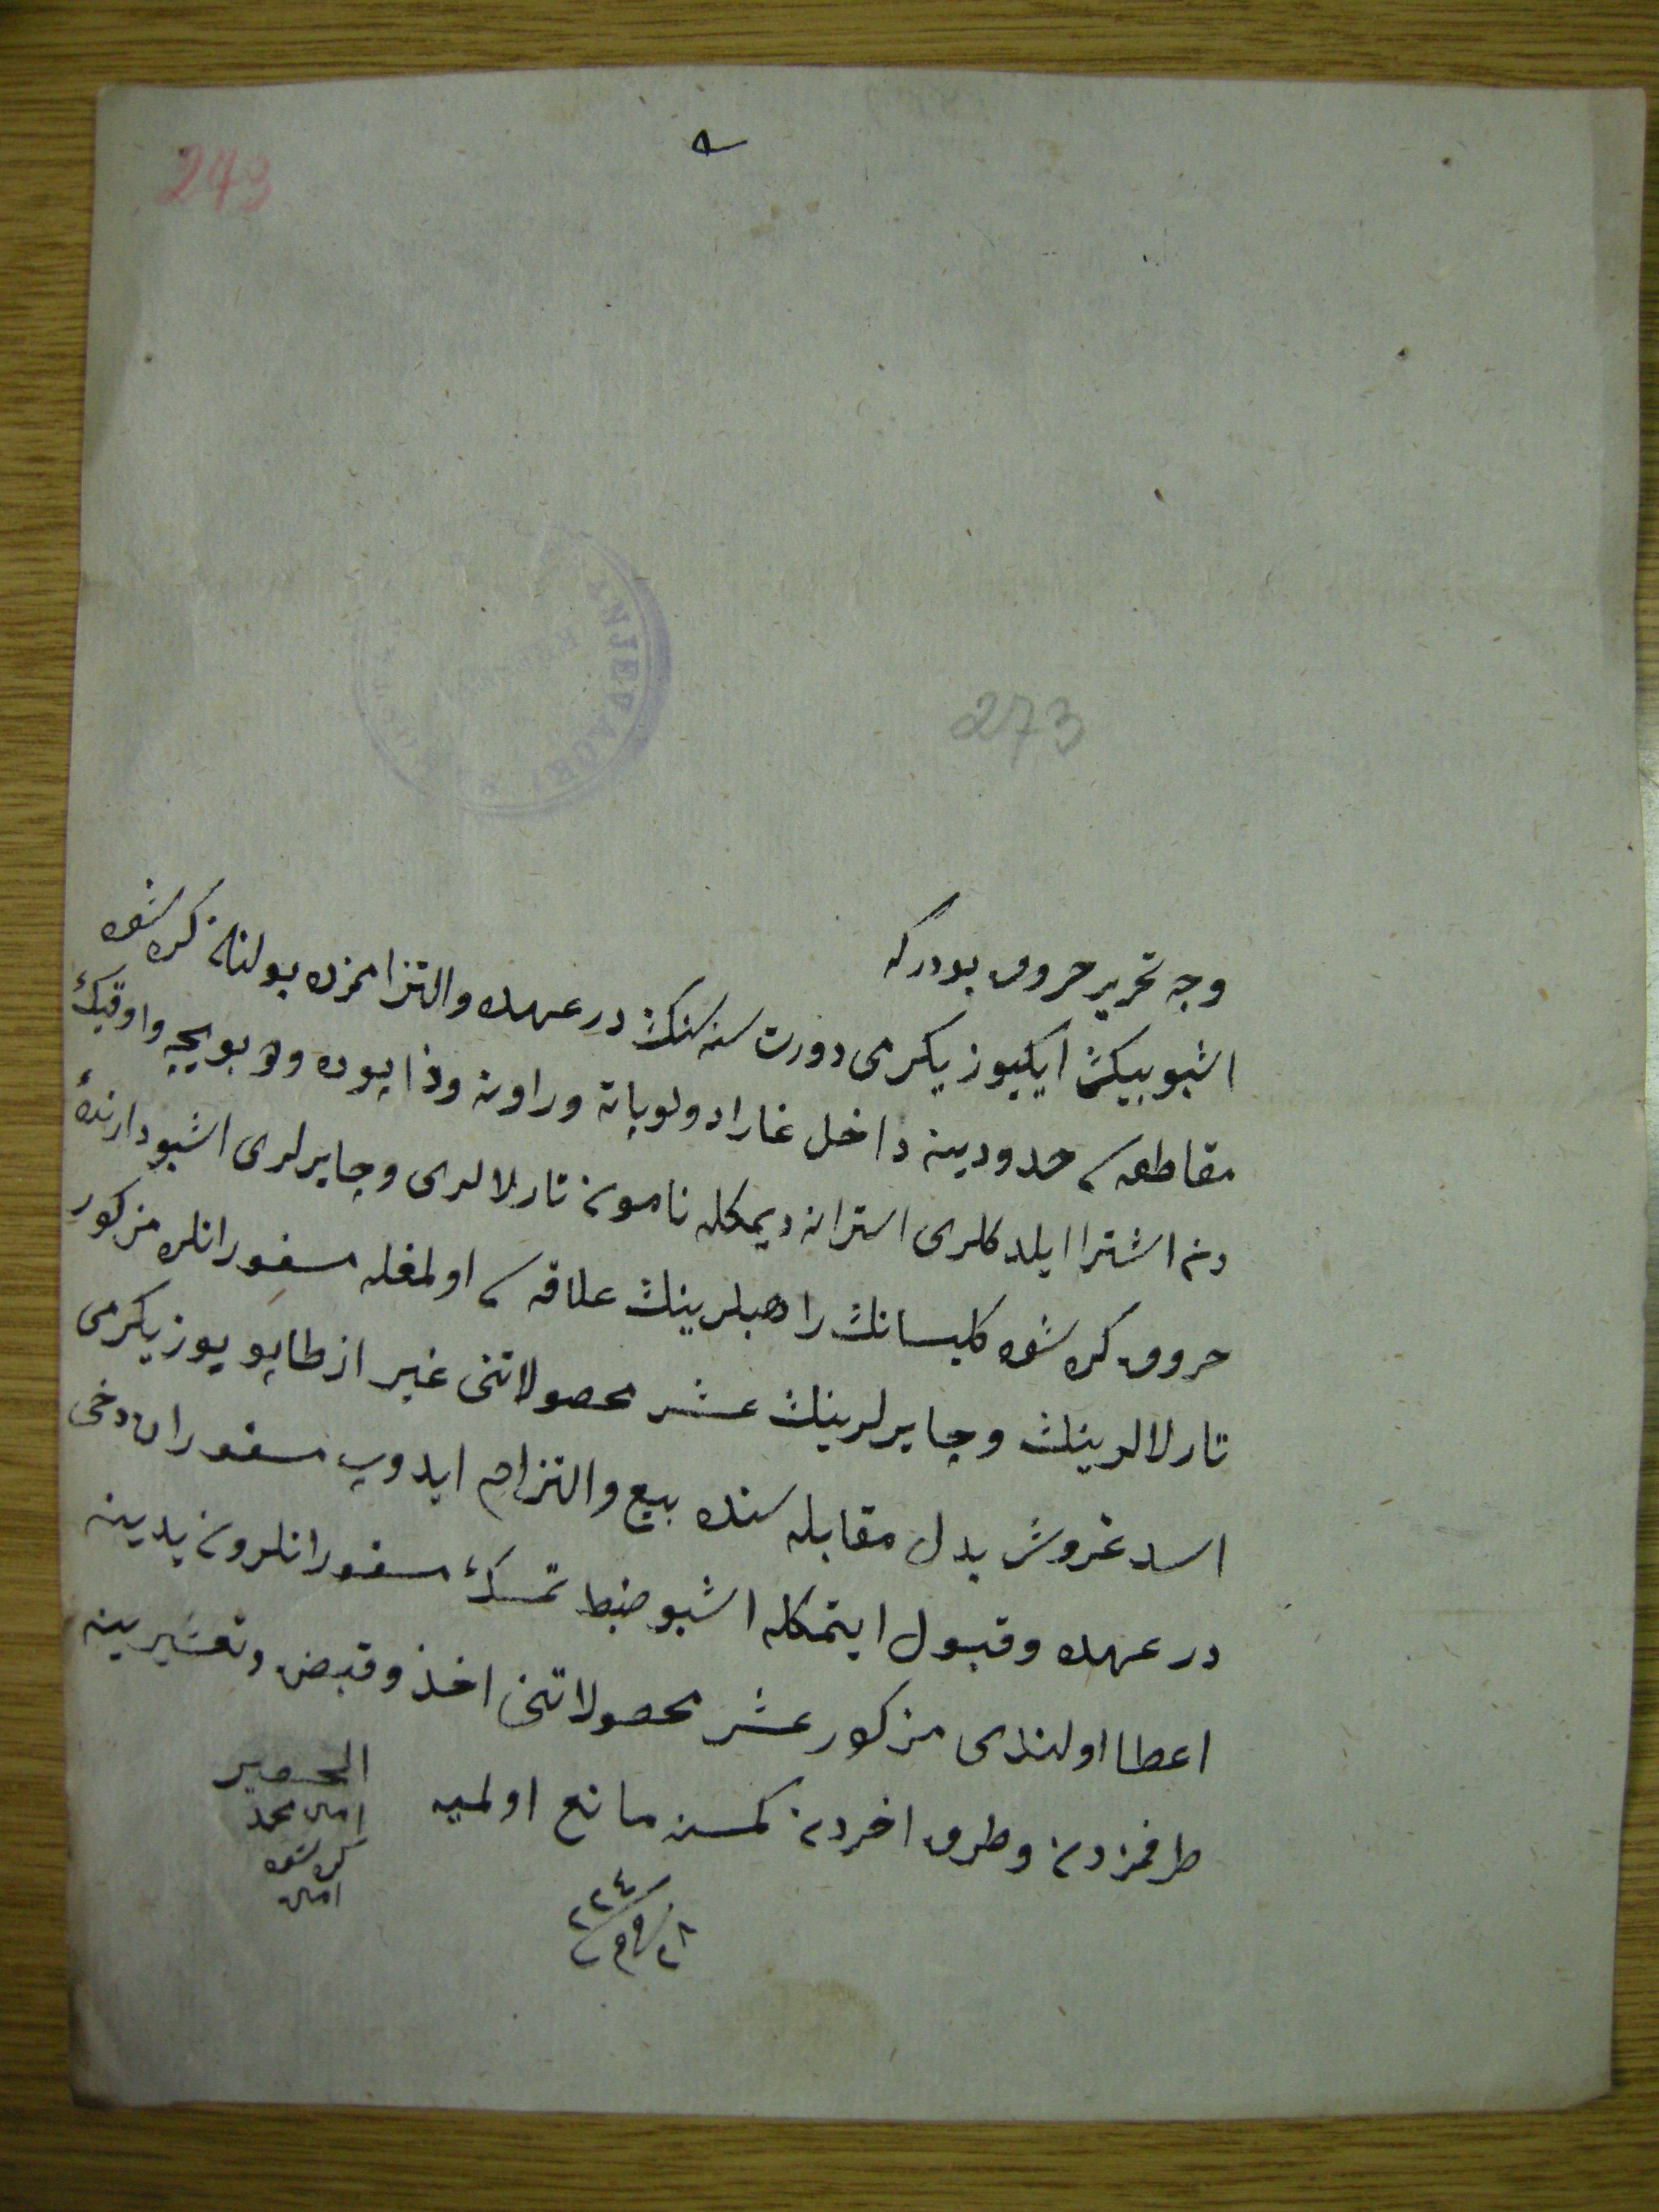 243
273
وجه تحرير حروف بودركه
اشبو بيك ايكيوز يكرمى دورت سنه سنك در عهده والتزامزده بولنان كره شوه
مقاطعه سى حدودينه داخل غارادولوپاته وراونه وذاپوده وه بويجه واوقيك
دن اشترا ايلدكلرى استرانه ديمكله ناموس تارلالرى وچايرلرى اشبو دارنده
حروف كره شوه كليسانك راهبلرينك علاقه سى اولمغله مسفورانلره مزكور
تارلالرينك وچايرلرينك عشر محصولاتنى غير از طاپو يوز يكرمى
اسد غروش بدل مقابله سنده بيع والتزام ايدوب مسفوران دخى
در عهده وقبول ايتمكله اشبو ضبط تمسك مسفورانلرون يدينه
اعطا اولندى مزكور عشر محصولاتنى اخذ وقبض وتعشيرينه
طرفمزدن وطرف اخردن كمسنه مانع اولميه
امين محمد
كره شوه
امين
٢٢٤
٢٨